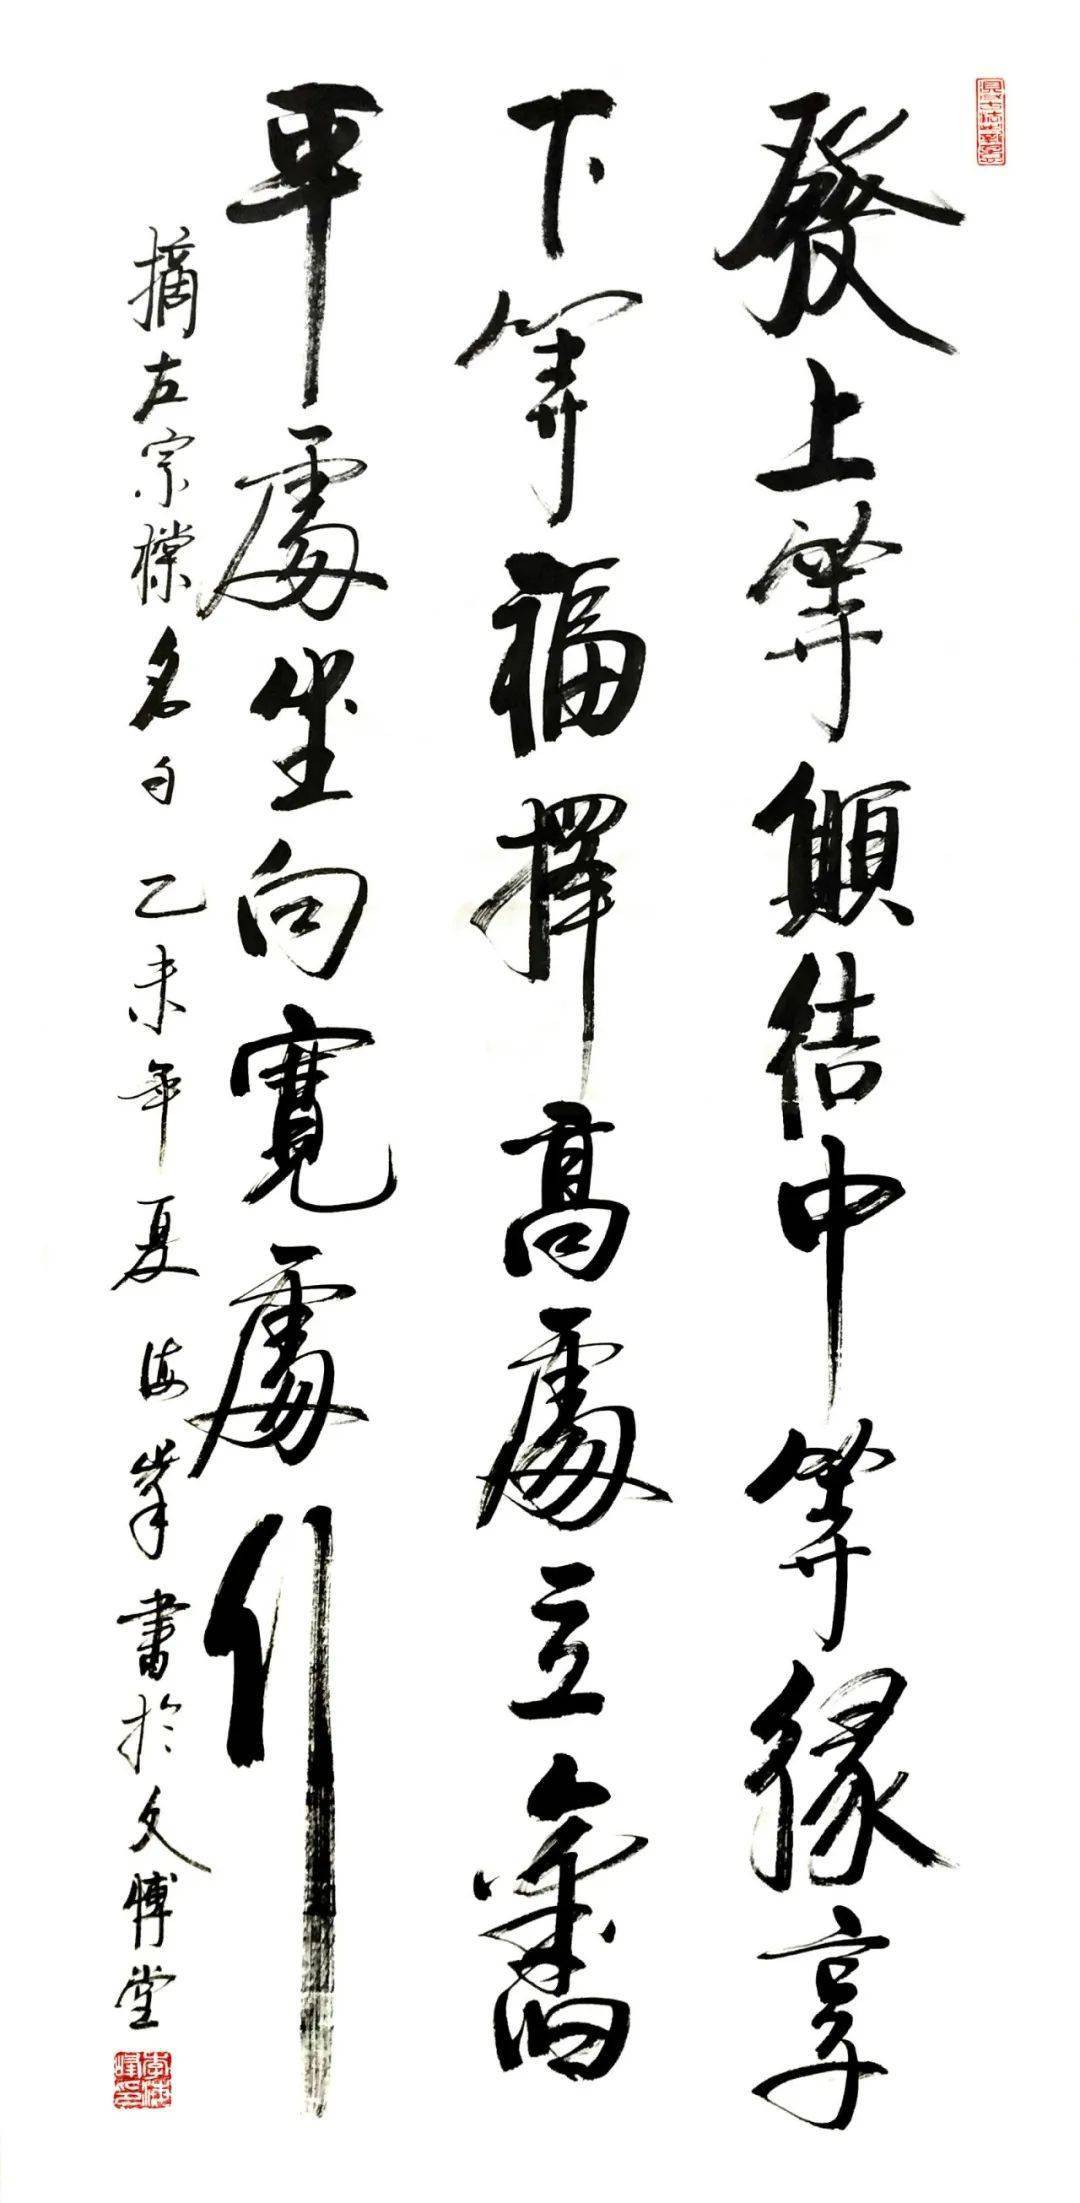 發上等願結中等緣享
下等福擇高處立
平處坐向寬處行
摘左宗棠名句 乙未年夏 海峯書於文博堂
李海峰印